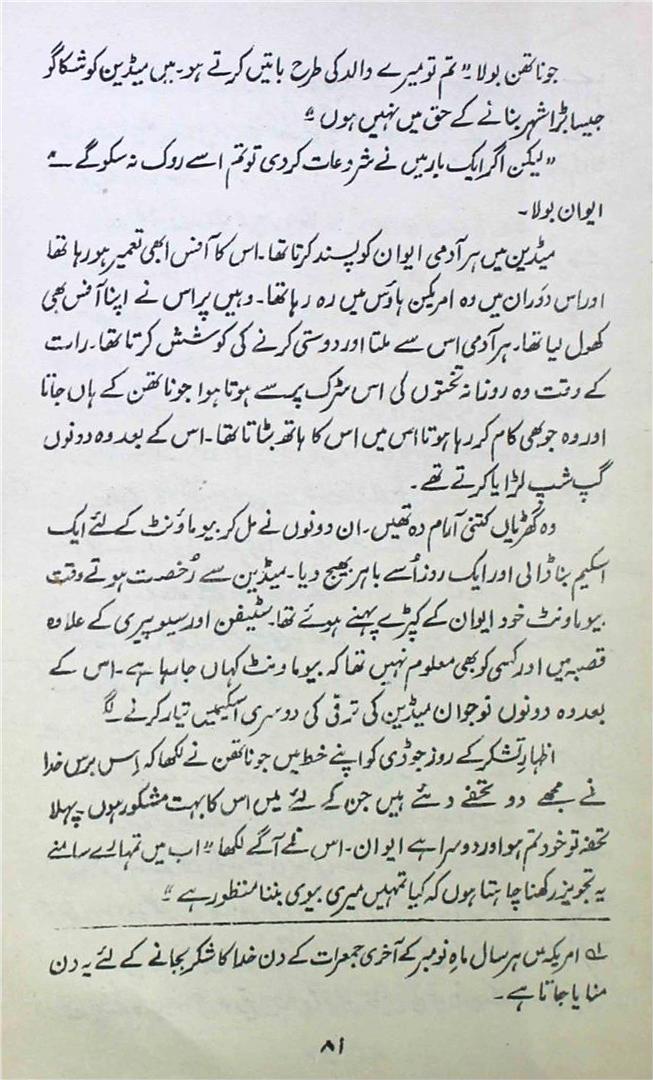 جوناتھن بولا۔ "تم تو میرے والد کی طرح باتیں کرتے ہو۔ میں میڈین کو شکاگو
جیسا بڑا شہر بنانے کے حق میں نہیں ہوں"
"لیکن اگر ایک بار میں نے شروعات کر دی تو تم اسے روک نہ سکو گے۔"
ایوان بولا۔
میڈین میں ہر آدمی ایوان کو پسند کرتا تھا۔ اس کا آفس ابھی تعمیر ہو رہا تھا
اور اس دَوران میں وہ امریکن ہاؤس میں رہ رہا تھا۔ وہیں پر اس نے اپنا آفس بھی
کھول لیا تھا۔ ہر آدمی اس سے ملتا اور دوستی کرنے کی کوشش کرتا تھا۔ رات
کے وقت وہ روزانہ تختوں کی اس سڑک پر سے ہوتا ہوا جوناتھن کے ہاں جاتا
اور وہ جو بھی کام کر رہا ہوتا اس میں اس کا ہاتھ بٹاتا تھا۔ اس کے بعد وہ دونوں
گپ شپ لڑایا کرتے تھے۔
وہ گھڑیاں کتنی آرام دہ تھیں۔ ان دونوں نے مل کر بیوماؤنٹ کے لئے ایک
اسکیم بنا ڈالی اور ایک روز اُسے باہر بھیج دیا۔ میڈین سے رُخصت ہوتے وقت
بیوماونٹ خود ایوان کے کپڑے پہنے ہوئے تھا۔ سٹیفن اور سیوپیری کے علاوہ
قصبہ میں اور کسی کو بھی معلوم نہیں تھا کہ بیوماونٹ کہاں جا رہا ہے۔ اس کے
بعد وہ دونوں نوجوان میڈین کی ترقی کی دوسری اسکیمیں تیار کرنے لگے
اظہارِ تشکر کے روز جوڈی کو اپنے خط میں جوناتھن نے لکھا کہ اِس برس خدا
نے مجھے دو تحفے دئے ہیں جن کے لئے میں اس کا بہت مشکور ہوں۔ پہلا
تحفہ تو خود تم ہو اور دوسرا ہے ایوان۔ اس نے آگے لکھا "اب میں تمہارے سامنے
یہ تجویز رکھنا چاہتا ہوں کہ کیا تمہیں میری بیوی بننا منظور ہے"
لے امریکہ میں ہر سال ماہِ نومبر کے آخری جمعرات کے دن خدا کا شکر بجانے کے لئے یہ دن
منایا جاتا ہے۔
۸۱